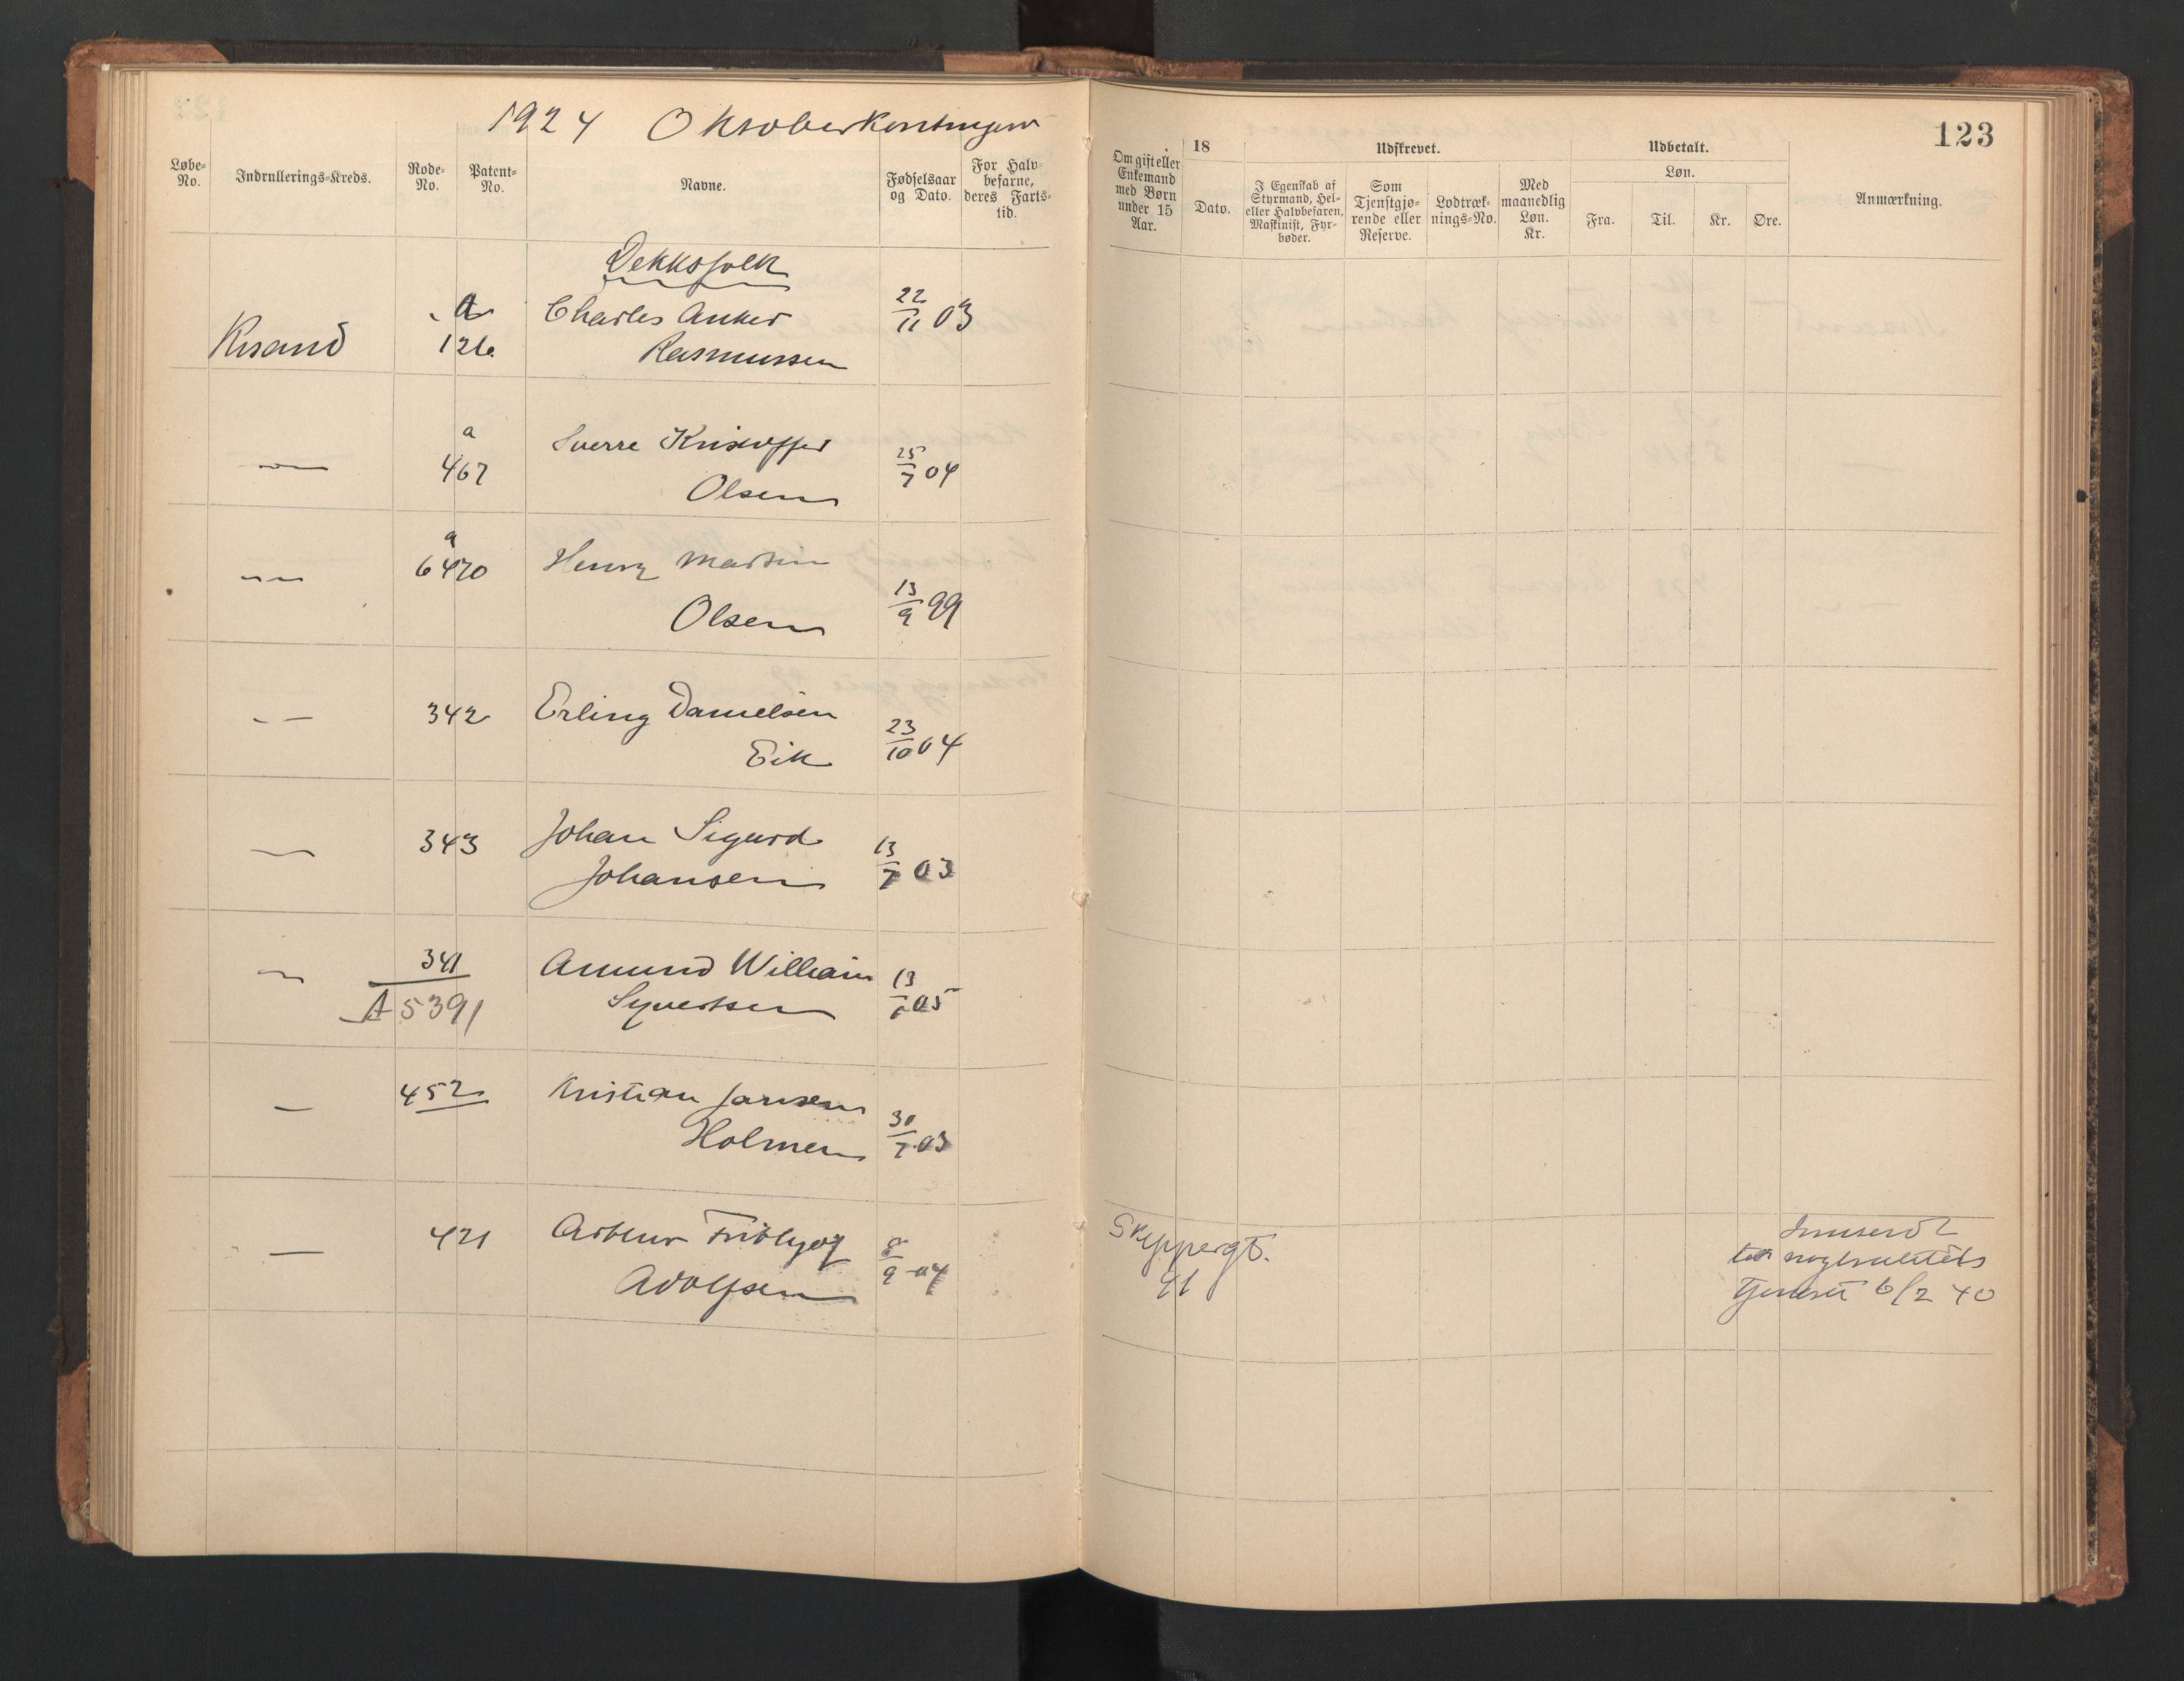 1924 Oktoberkontingent
123
Løbe-
No.
Indrullerings-Kreds.
Rode-
No.
Patent-
No.
Navne.
Fødselsaar
og Dato.
For Halv-
befarne,
deres Farts-
tid.
Om gift eller
Enkemand
med Børn
under 15
Aar.
18
Dato.
Udskrevet.
I Egenskab af
Styrmand, Hel-
eller Halvbefaren,
Maskinist, Fyr-
bøder.
Som
Tjenstgjø-
rende eller
Reserve.
Lodtræk-
nings-No.
Med
maanedlig
Løn.
Kr.
Udbetalt.
Løn.
Fra.
Til.
Kr.
Øre.
Anmærkning.
Dekksfolk
Krsand a 126 Charles Anker Rasmussen 22/11 03
— a 467 Sverre Kristoffer Olsen 25/7 04
— a 6470 Henry Martin Olsen 13/9 99
— 342 Erling Danielsen Eik 23/10 04
— 343 Johan Sigurd Johansen 13/7 03
— 341 A 5391 Amund William Syvertsen 13/ 05
— 452 Kristian Jansen Holmen 30/7 03
— 421 Arthur Fritbjof Adolfsen 8/9 04
Skippergt.
91
til nøytralitets
tjeneste 6/2 40